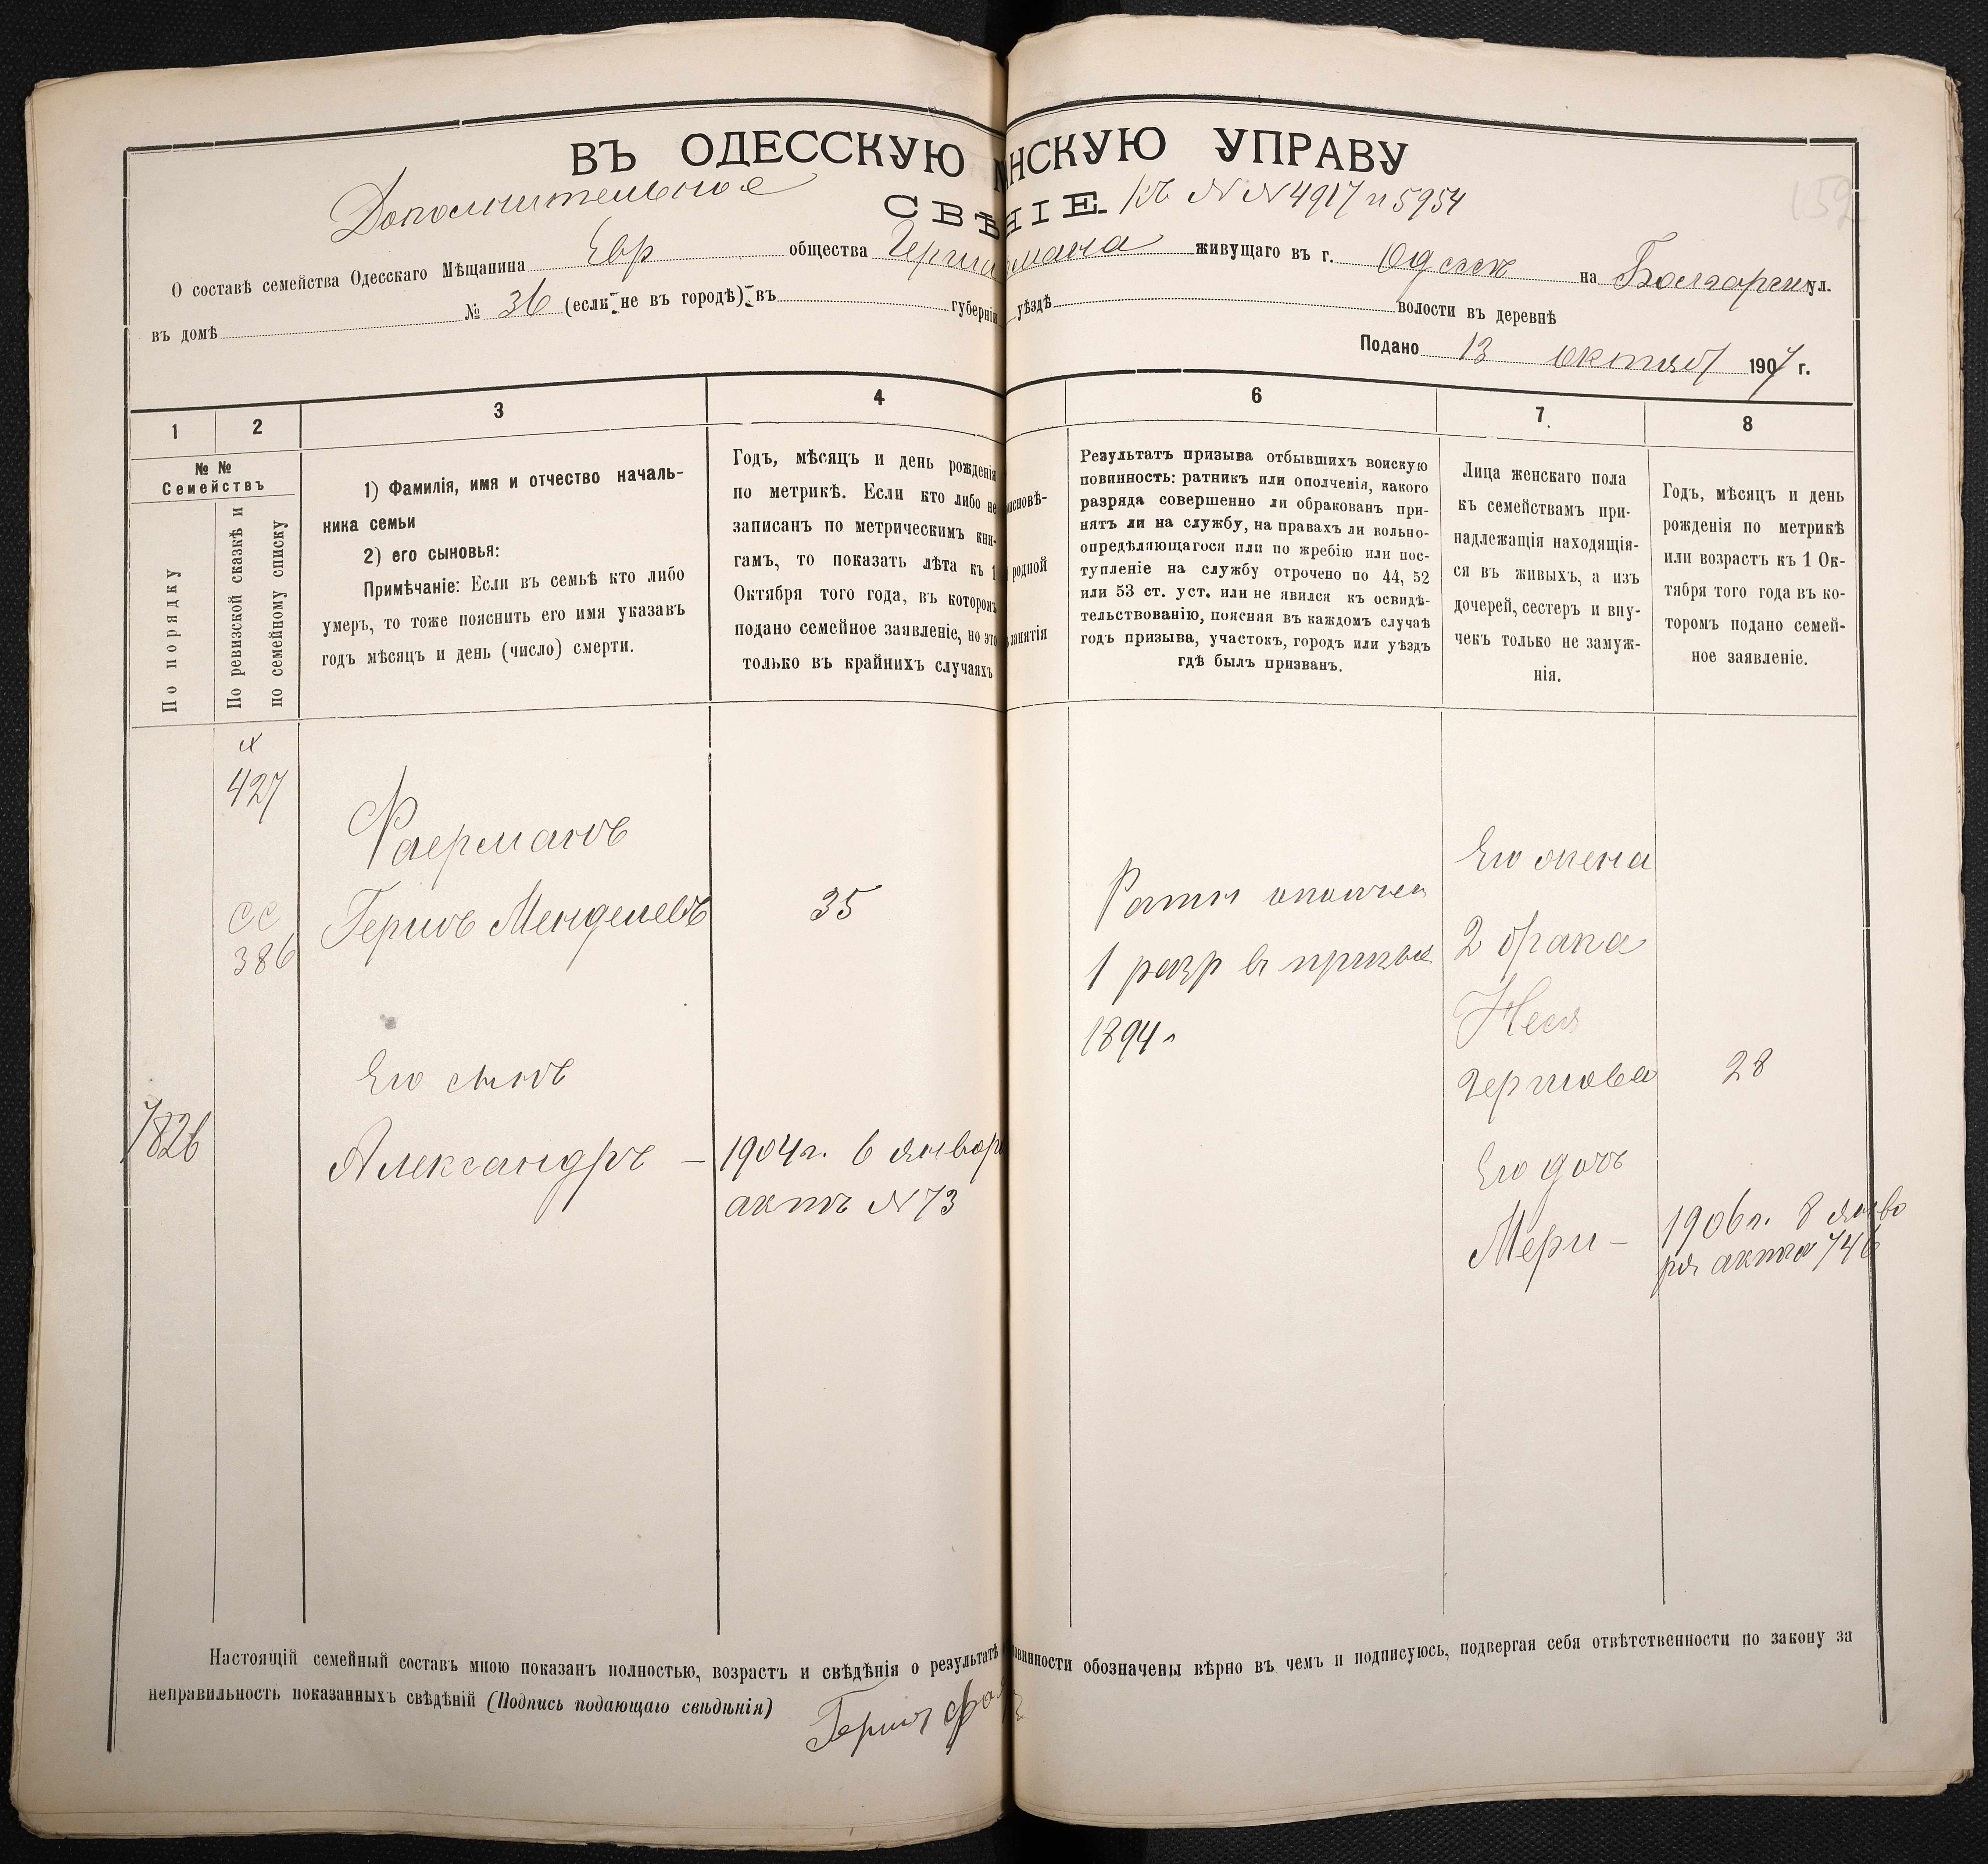 ВЪ ОДЕССКУЮ НСКУЮ УПРАВУ
Дополнительное
СВѢ НІЕ къ NN 4917 и 5954
О составѣ семейства Одесскаго Мѣщанина Евр общества живущаго въ г. на ул.
въ домѣ № 36 (если не въ городѣ) въ губерніи уѣздѣ волости въ деревнѣ
Подано 13 октяб 1907 г.
1 2 3 4 6 7. 8
№ №
Семействъ
По порядку
По ревизской сказкѣ и
по семейному списку
1) Фамилія, имя и отчество началь-
ника семьи
2) его сыновья:
Примѣчаніе: Если въ семьѣ кто либо
умеръ, то тоже пояснить его имя указавъ
годъ мѣсяцъ и день (число) смерти.
Годъ, мѣсяцъ и день рожденія
по метрикѣ. Если кто либо не
записанъ по метрическимъ кни-
гамъ, то показать лѣта къ 1
Октября того года, въ которомъ
подано семейное заявленіе, но это
только въ крайнихъ случаяхъ
исповѣ-
родной
занятія
Результатъ призыва отбывшихъ воискую
повинность: ратникъ или ополченія, какого
разряда совершенно ли обракованъ при-
нятъ ли на службу, на правахъ ли вольно-
опредѣляющагося или по жребію или пос-
тупленіе на службу отрочено по 44, 52
или 53 ст. уст. или не явился къ освидѣ-
тельствованію, поясняя въ каждомъ случаѣ
годъ призыва, участокъ, городъ или уѣздъ
гдѣ былъ призванъ.
Лица женскаго пола
къ семействамъ при-
надлежащія находящія-
ся въ живыхъ, а изъ
дочерей, сестеръ и вну-
чекъ только не замуж-
нія.
Годъ, мѣсяцъ и день
рожденія по метрикѣ
или возрастъ къ 1 Ок-
тября того года въ ко-
торомъ подано семей-
ное заявленіе.
427
сс
386
7826
Фаерманъ
Гершъ Менделевъ
35
Его сынъ
Александръ —
1904 г. 6 январ
актъ N 73
Ратн ополчен
1 разр в призыв
1894 г
Его жена
2 брака
Неся
Гершова
28
Его дочь
Мери —
1906 г. 8 янва
ря акта 746
Настоящій семейный составъ мною показанъ полностью, возрастъ и свѣдѣнія о результатѣ повинности обозначены вѣрно въ чемъ и подписуюсь, подвергая себя отвѣтственности по закону за
неправильность показанныхъ свѣдѣній (Подпись подающаго свѣдѣнія)
Гершъ